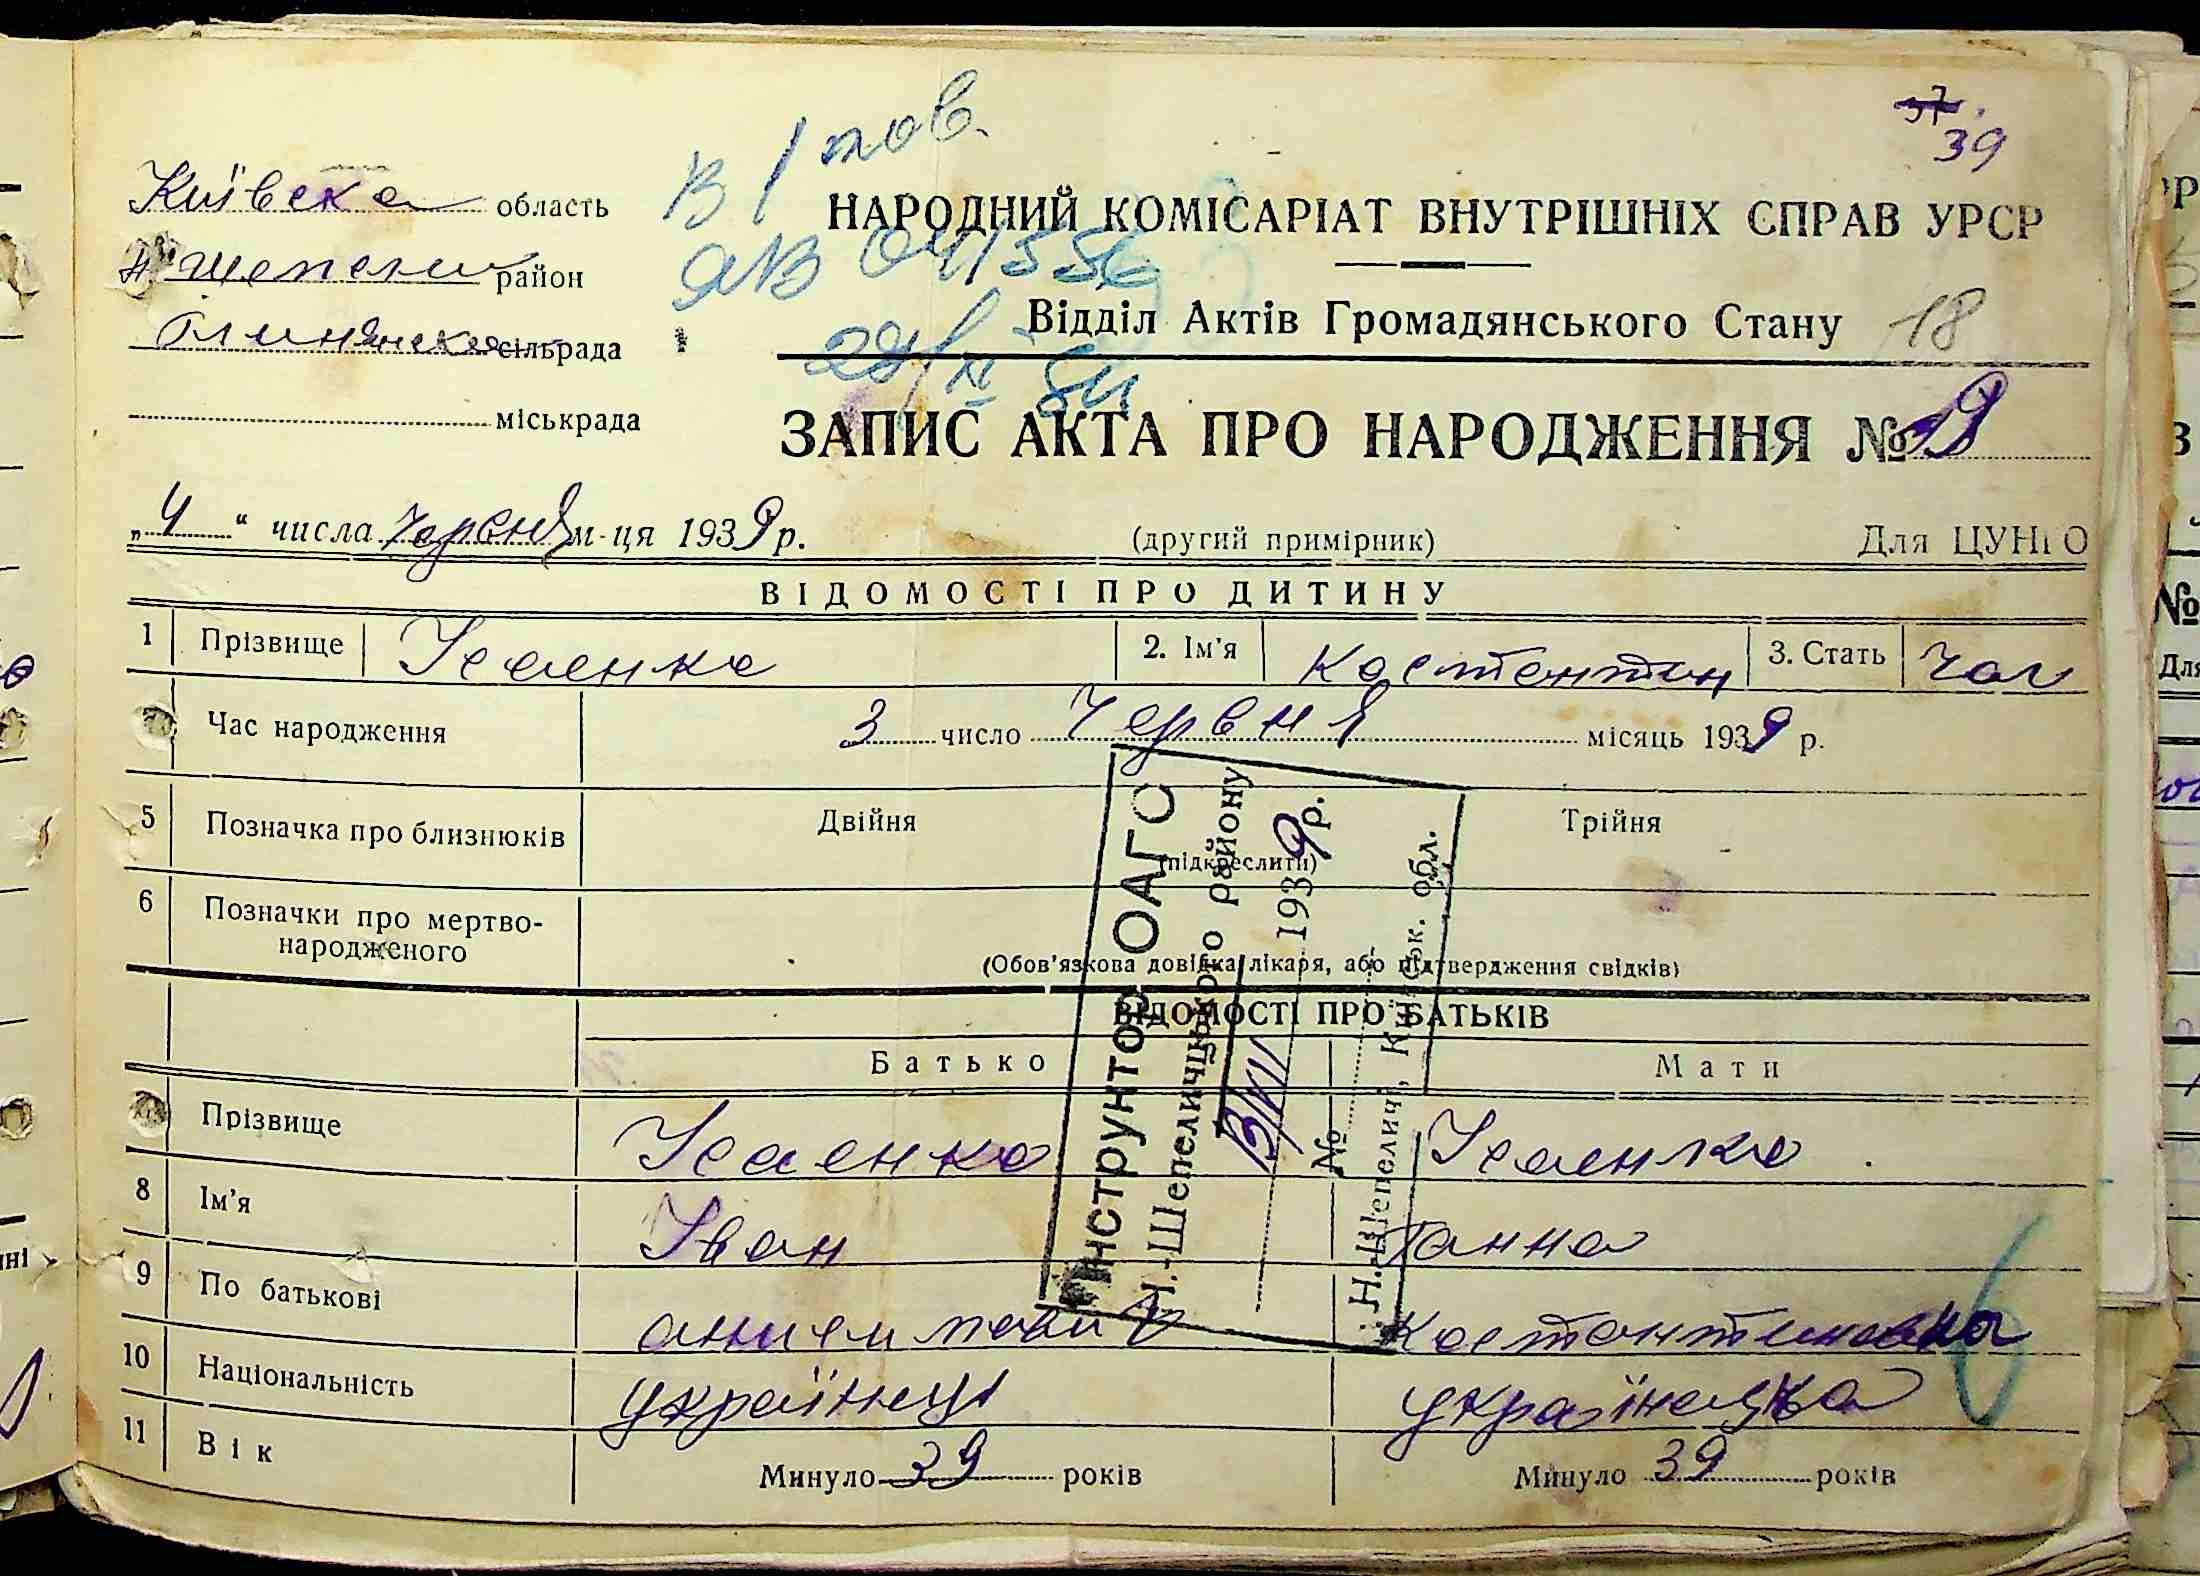 37
39
В 1 пов.
ЯВ 041556
29/XI 84
Київська область
Н Шепелиц район
Глинянска сільрада
міськрада
НАРОДНИЙ КОМІСАРІАТ ВНУТРІШНІХ СПРАВ УРСР
Відділ Актів Громадянського Стану 18
ЗАПИС АКТА ПРО НАРОДЖЕННЯ №
„4“ числа Червня м-ця 1939 р. (другий примірник) Для ЦУНГО
ВІДОМОСТІ ПРО ДИТИНУ
1 Прізвище Усаенко 2. Ім'я Костентин 3. Стать чол
Час народження 3 число Червня місяць 1939 р.
5 Позначка про близнюків Двійня (підкреслити) Трійня
6 Позначки про мертво-
народженого
(Обов'язкова довідка лікаря, або підтвердження свідків)
ВІДОМОСТІ ПРО БАТЬКІВ
Батько Мати
Прізвище Усаенко Усаенко
8 Ім'я Іван Ганна
9 По батькові Костантиновна
10 Національність українць українцка
11 Вік Минуло 39 років Минуло 39 років
Інструктор ОАГС
Н.-Шепелицького району
193 9 р.
№
Н.-Шепеличі, Київськ. обл.
6